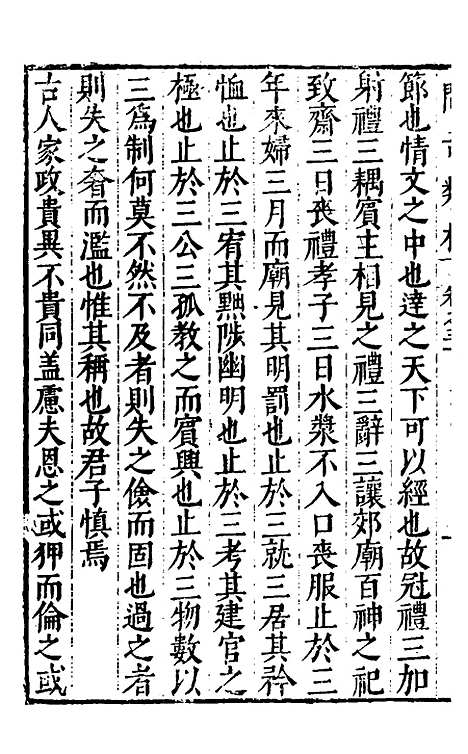 節也情文之中也達之天下可以經也故冠禮三加
射禮三耦賓主相見之禮三辭三讓郊廟百神之祀
致齋三日喪禮孝子三日水漿不入口喪服止於三
年來婦三月而廟見其明罰也止於三就三居其矜
恤也止於三宥其黜陟幽明也止於三考其建官之
極也止於三公三孤教之而賓興也止於三物數以
三爲制何莫不然不及者則失之儉而固也過之者
則失之奢而濫也惟其稱也故君子慎焉
古人家政貴異不貴同盖慮夫恩之或狎而倫之或